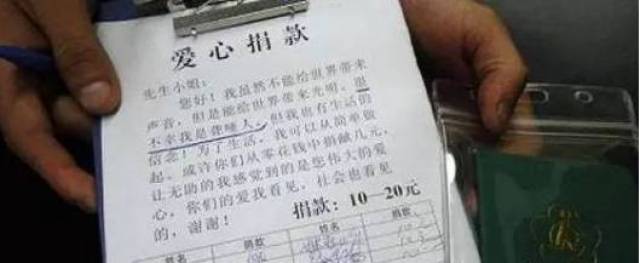 爱心捐款
先生小姐：
您好！我虽然不能给世界带来
声音，但是能给世界带来光明，很
不幸我是聋哑人，但我也有生活的
信念！为了生活，我可以从简单做
起，或许你们从零花钱中捐献几元，
让无助的我感觉到的是您伟大的爱
心，你们的爱我看见，社会也看见
的，谢谢！
捐款：10—20元
捐款 姓名 捐款